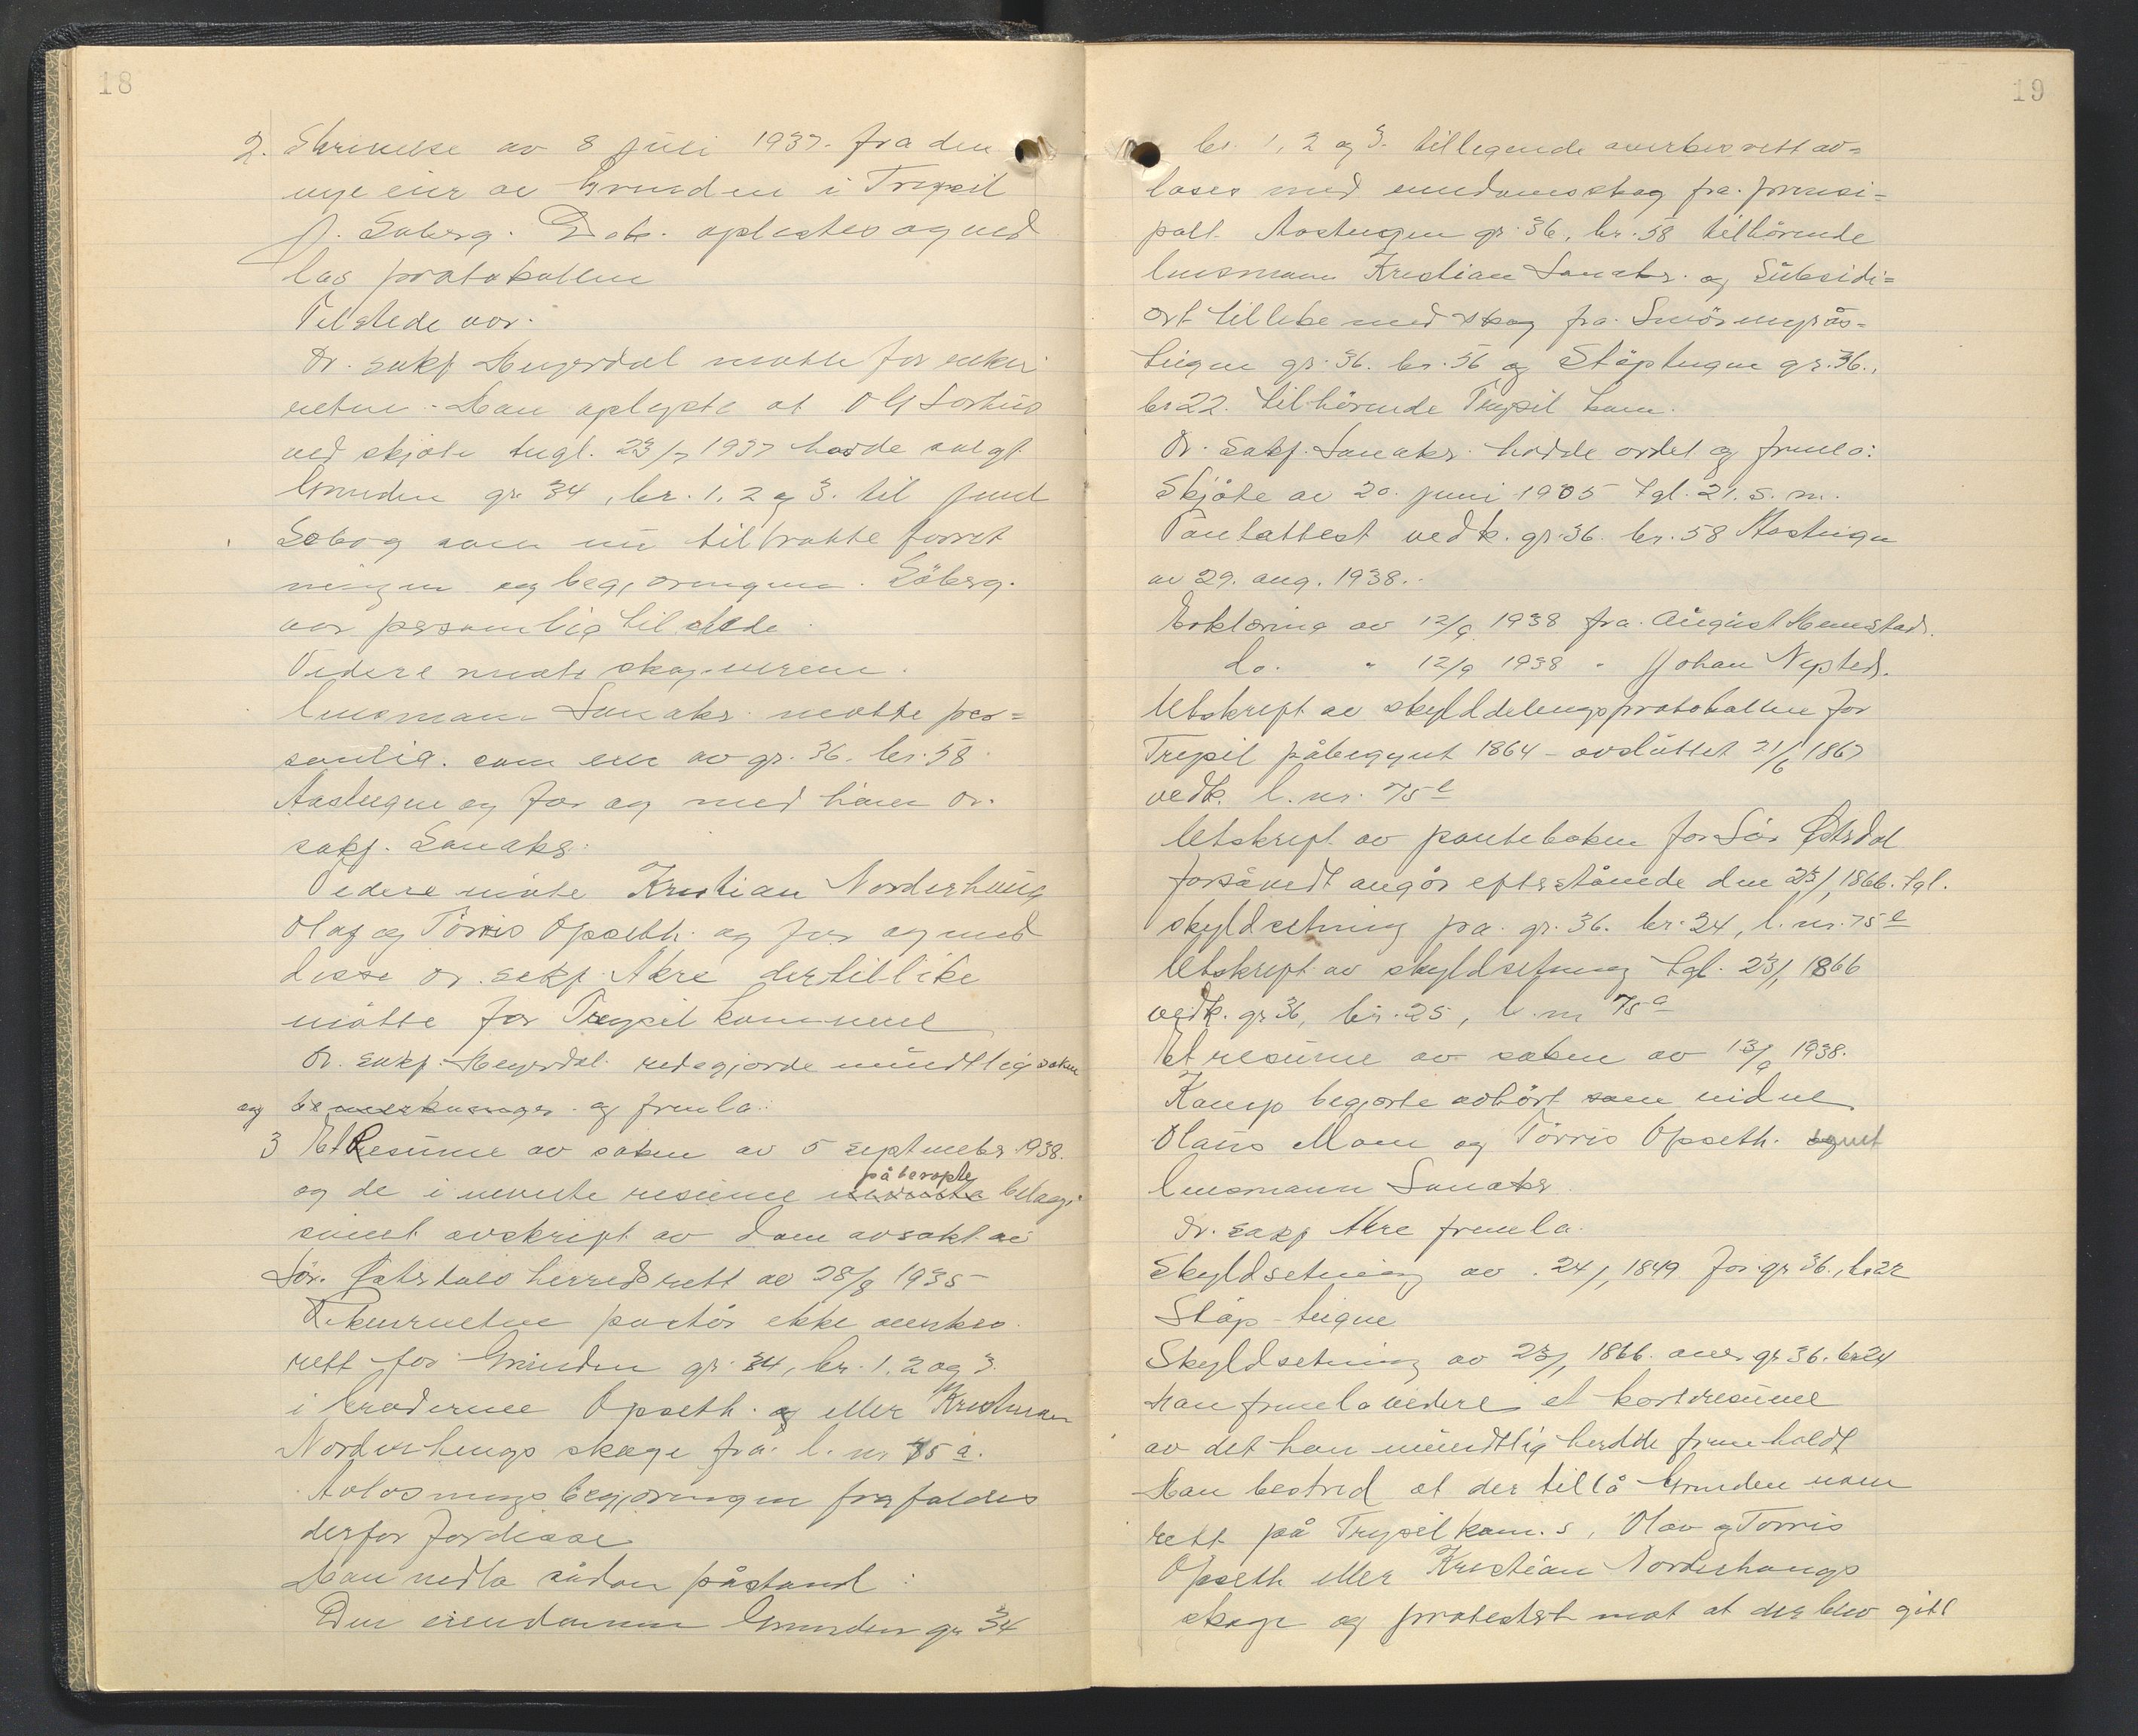 18
2. Skrivelse av 8 juli 1937. fra den
nye eier av Grunden i Trysil
J. Søberg. Dok. oplestes og ved
las protokollen
Tilstede var.
Or. sakf. Heyerdal møtte for rekvi
rentene. Han oplyste at
ved skjøte tngl. 23/7 1937 hadde solgt
Grunden gr. 34, br. 1, 2 og 3. til
Søberg som nu tiltrådte forret
ningen og begjæringene. Søberg.
var personlig tilstede.
Videre møtte skogeierne.
lensmann Sanaker møtte per=
sonlig. som eier av gr. 36. br. 58
Aasteigen og for og med ham or.
sakf. Sanaker.
Videre møtte Kristian Norderhaug
Olaf og Törris Opseth. og for og med
disse or. sakf. Akre der tillike
møtte for Trysil kommune
Or. sakf. Heyerdal. redegjorde mundtlig saken
og bemerkninger. og fremla:
3 Et Resume av saken av 5 september 1938.
og de i nevnte resume nevnte påberopte bilag,
samt avskrift av dom avsakt av
Sör. Østerdals herredsrett av 28/8 1935
Rekvirentene påstår ikke virkes
rett for Grunden gr. 34, br. 1. 2 og 3.
i brødrene Opseth. og eller Kristian
Norderhaugs skoge fra l. nr 75 a.
Avløsningsbegjæringen frafaldes
derfor for disse
Han nedla sådan påstand:
Den eiendommen Grunden gr. 34
19
br. 1, 2 og 3. tilliggende virkesrett av=
løses med eiendomsskog fra. prinsi=
palt. Aasteigen gr. 36, br. 58 tilhörende
lensmann Kristian Sanaker. og Subsidi=
ært tillike med skog fra
teigen gr. 36. br. 56 og Støpteigen gr. 36.,
br 22. tilhörende Trysil kom.
Or. sakf. Sanaker. hadde ordet og fremla:
Skjøte av 20. juni 1905 tgl. 21. s. m.
Pantattest vedk. gr. 36. br. 58 Aasteigen
av 29. aug. 1938.
Erklæring av 12/9 1938 fra. August
do. " 12/9 1938 " Johan Nysted.
Utskrift av skylddelingsprotokollen for
Trysil påbegynt 1864 - avsluttet 21/6 1867
vedk. l. nr. 75 e
Utskrift av panteboken for Sör Østerdal
forsåvidt angår efterstående den 23/1 1866. tgl.
skyldsetning på gr. 36. br. 24, l. nr. 75 e
Utskrift av skyldsetning tgl. 23/1 1866
vedk. gr 36, br. 25, l. nr 75 a
Et resume av saken av 13/9 1938.
begjærte avhört som vidne
Olaus Moen og Törris Opseth. samt
lensmann Sanaker
Or. sakf Akre fremla.
Skyldsetning av 24/1 1849 for gr 36., br 22
Støp-teigen
Skyldsetning av 23/1 1866 over gr 36. br 24
Han fremla videre et kort resume
av det han mundtlig hadde fremholdt
Han bestred at der tillå Grunden noen
rett på Trysil kom.s, Olav og Torris
Opseth eller Kristian Norderhaugs
skoge og protestert mot at der blev gitt